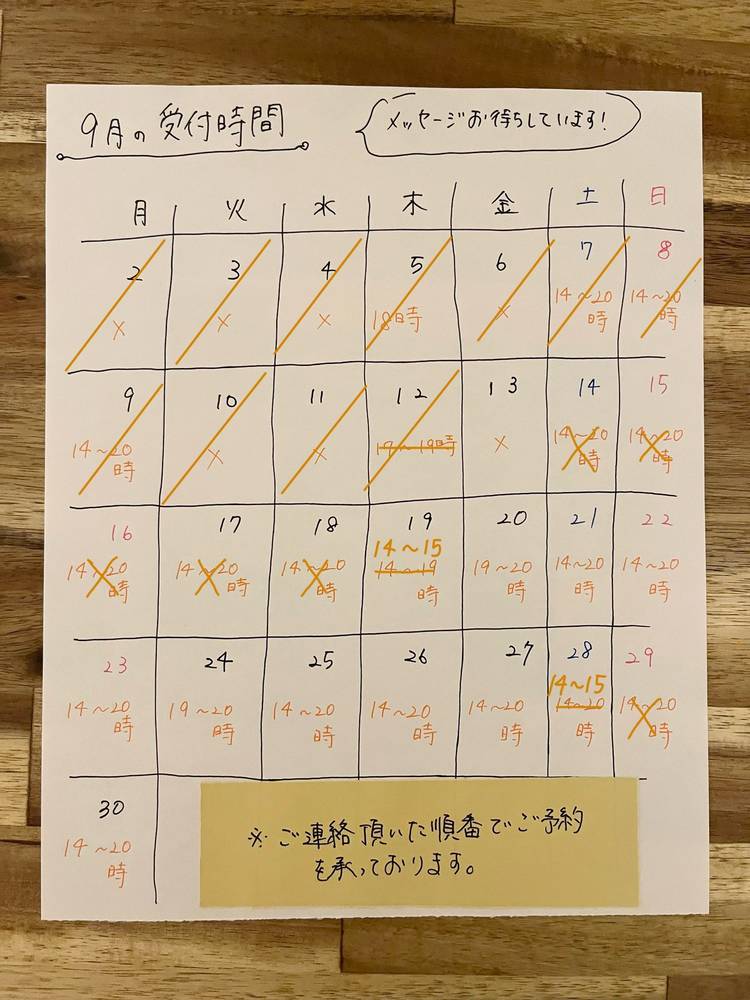 9月の受付時間
メッセージお待ちしています!
月 火 水 木 金 土 日
2 3 4 5 6 7 8
× × × 18時 × 14～20時 14～20時
9 10 11 12 13 14 15
14～20時 × × 17～19時 × 14～20時 14～20時
16 17 18 19 20 21 22
14～15
14～20時 14～20時 14～20時 14～19時 19～20時 14～20時 14～20時
23 24 25 26 27 28 29
14～15
14～20時 19～20時 14～20時 14～20時 14～20時 14～20時 14～20時
30
14～20時
※ご連絡頂いた順番でご予約
を承っております。